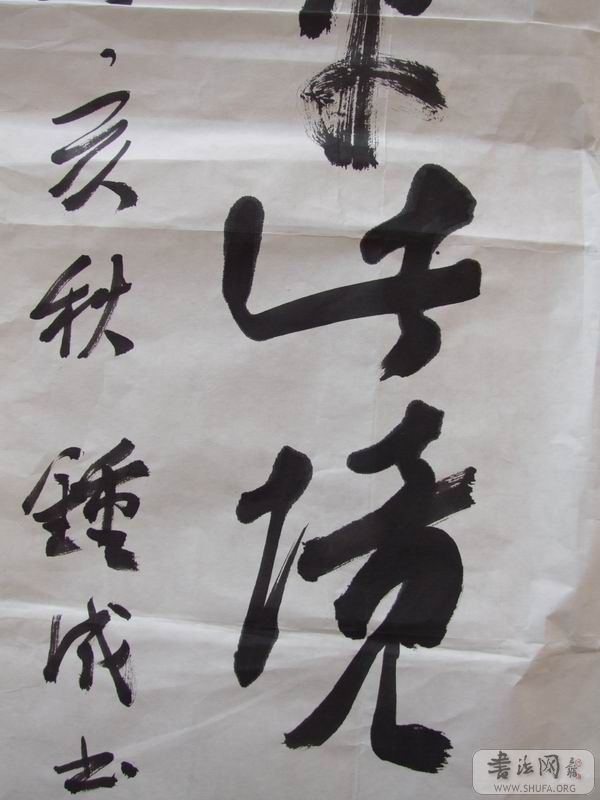 許境
亥秋鍾成书
书法网
WWW.SHUFA.ORG